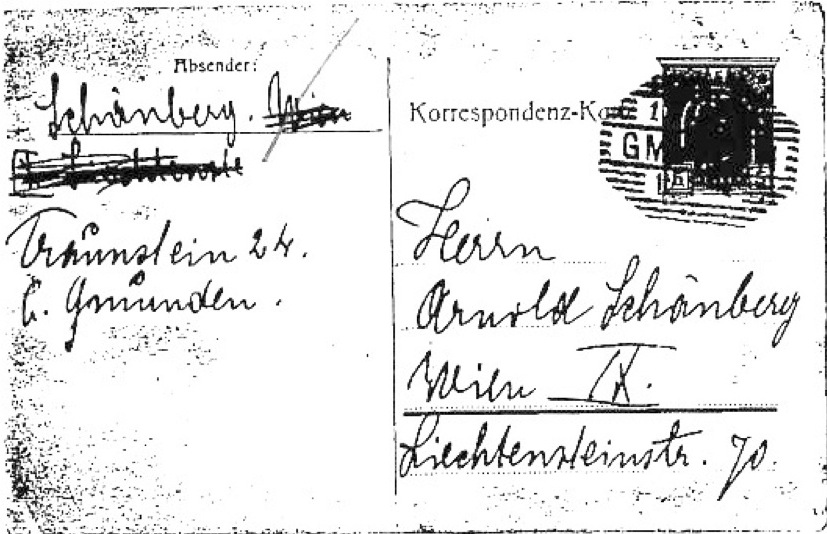 Absender:
Schönberg. Wien
Traunstein 24.
b. Gmunden.
Korrespondenz-Ka
GM
Herrn
Arnold Schönberg
Wien IX.
Liechtensteinstr. 70.